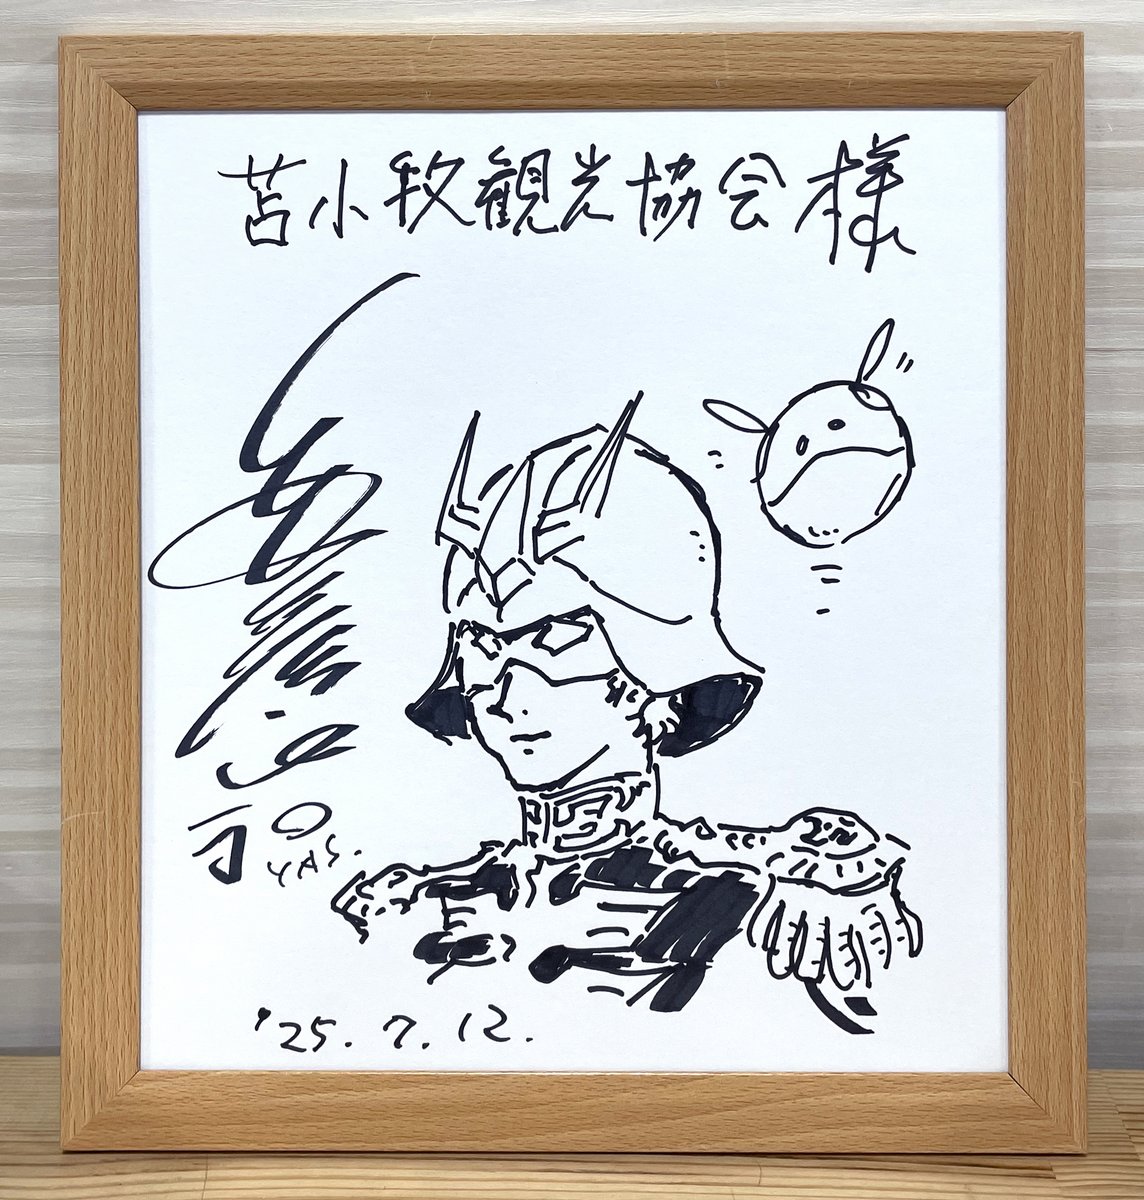 苫小牧観光協会様
YAS.
'25.7.12.